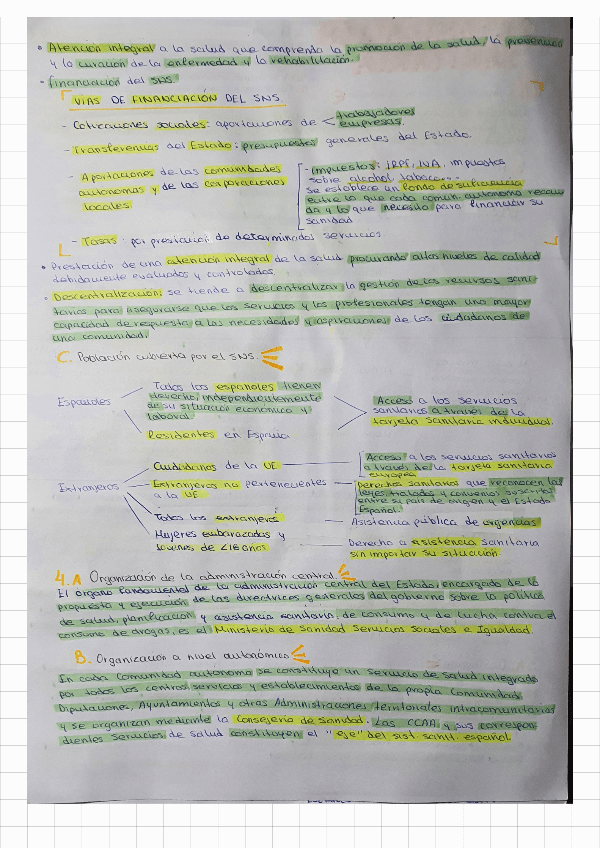 • Atención integral a la salud que comprenda la promoción de la salud, la prevención
y la curación de la enfermedad y la rehabilitación.
- financiación del SNS.
VIAS DE FINANCIACIÓN DEL SNS.
- Cotizaciones sociales: aportaciones de < trabajadores
empresas.
- Transferencias del Estado: presupuestos generales del Estado.
- Aportaciones de las comunidades
autonomas y de las corporaciones
locales.
- Impuestos: IRPF, IVA, impuestos
sobre alcohol, tabaco...
Se establece un fondo de suficiencia
entre lo que cada comun. autonoma recau
da y lo que necesita para financiar su
sanidad
- Tasas: por prestación de determinados servicios
• Prestación de una atención integral de la salud procurando altos niveles de calidad
debidamente evaluados y controlados.
• Descentralización: se tiende a descentralizar la gestión de los recursos sani-
tarios para asegurarse que los servicios y los profesionales tengan una mayor
capacidad de respuesta a las necesidades y aspiraciones de los ciudadanos de
una comunidad.
C. Población cubierta por el SNS.
Españoles
Todos los españoles tienen
derecho, independientemente
de su situación económica y
laboral.
Residentes en España
Acceso a los servicios
sanitarios a través de la
tarjeta sanitaria individual.
Extranjeros
Ciudadanos de la UE
Acceso a los servicios sanitarios
a través de la tarjeta sanitaria
europea
Extranjeros no pertenecientes
a la UE
Derechos sanitarios que reconocen las
leyes, tratados y convenios suscritos
entre su país de origen y el Estado
Español.
Todos los extranjeros
Asistencia pública de urgencias
Mujeres embarazadas y
jóvenes de <18 años
Derecho a asistencia sanitaria
sin importar su situación.
4. A Organización de la administración central.
El organo fundamental de la administración central del Estado, encargado de la
propuesta y ejecución de las directrices generales del gobierno sobre la política
de salud, planificación y asistencia sanitaria, de consumo y de lucha contra el
consumo de drogas, es el Ministerio de Sanidad Servicios Sociales e Igualdad.
B. Organización a nivel autonómico
En cada Comunidad autonoma se constituye un Servicio de Salud integrado
por todos los centros, servicios y establecimientos de la propia Comunidad,
Diputaciones, Ayuntamientos y otras Administraciones territoriales intracomunitarias
y se organizan mediante la Consejería de Sanidad. Las CCAA y sus correspon
dientes Servicios de salud constituyen el "eje" del sist. sanit. español.